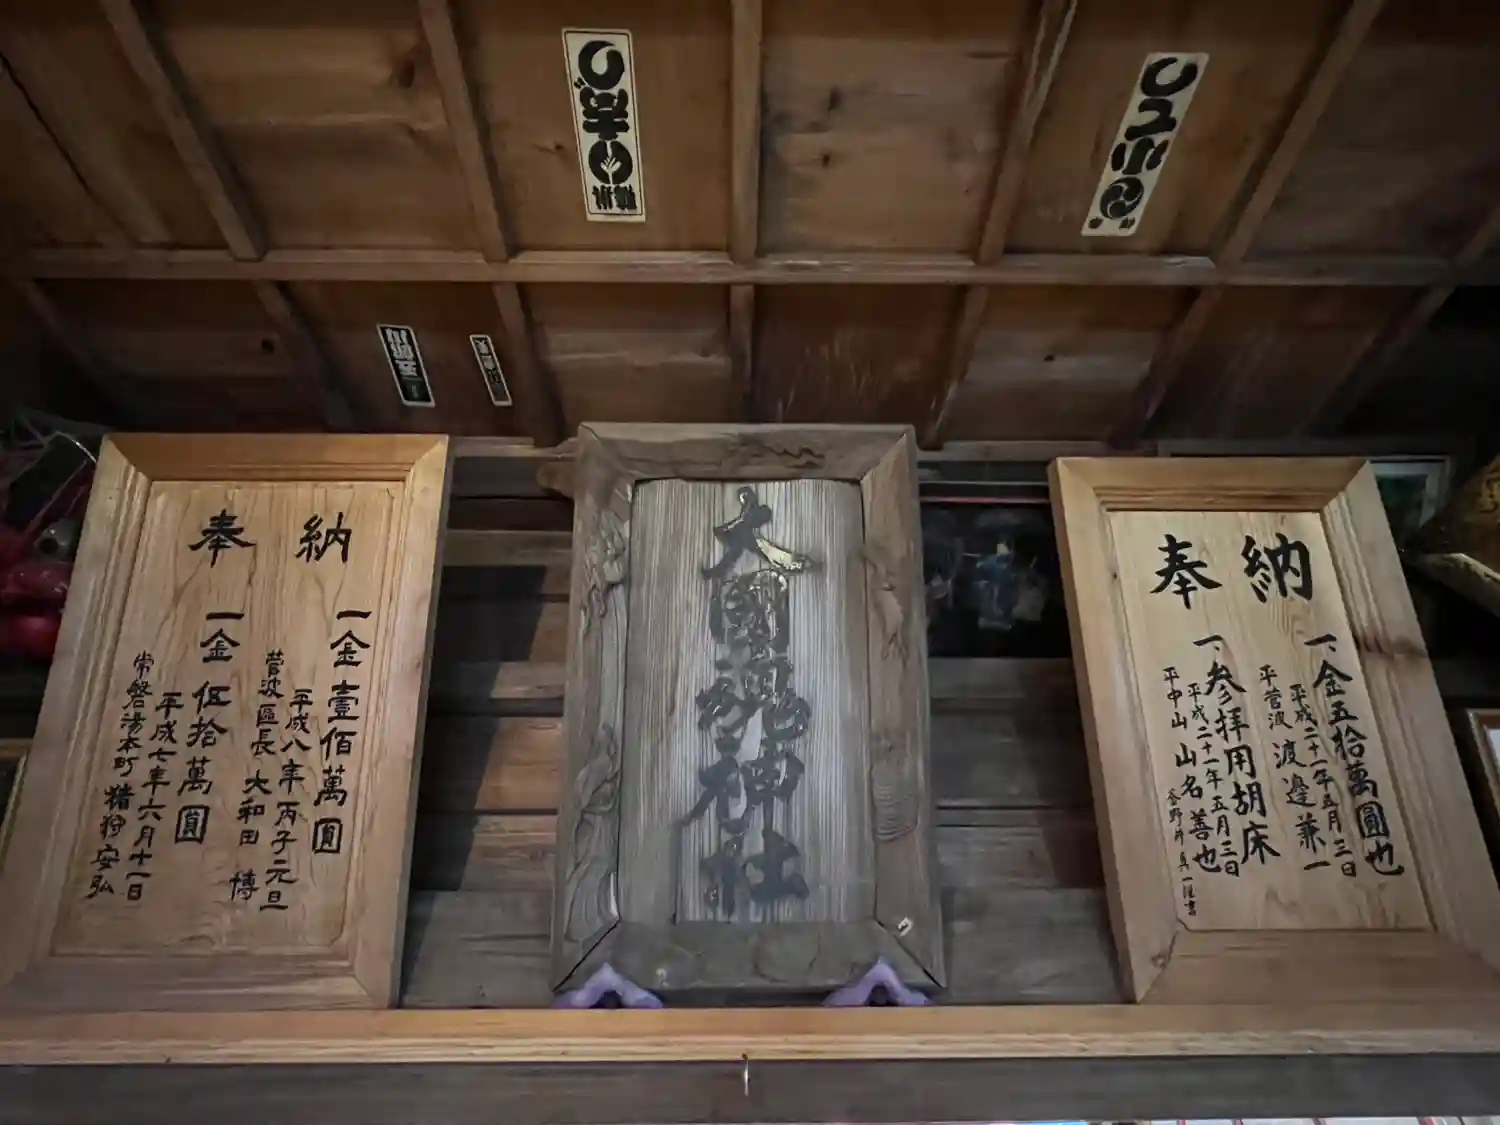 大國魂神社
納奉
一金壹佰萬圓
平成八年丙子元旦
菅波區長 大和田 博
一金伍拾萬圓
平成七年六月十一日
常磐湯本町 猪狩安弘
納奉
一、金五拾萬圓也
平成二十一年五月三日
平菅波 渡邉兼一
一、参拝用胡床
平成二十一年五月三日
平中山 山名善也